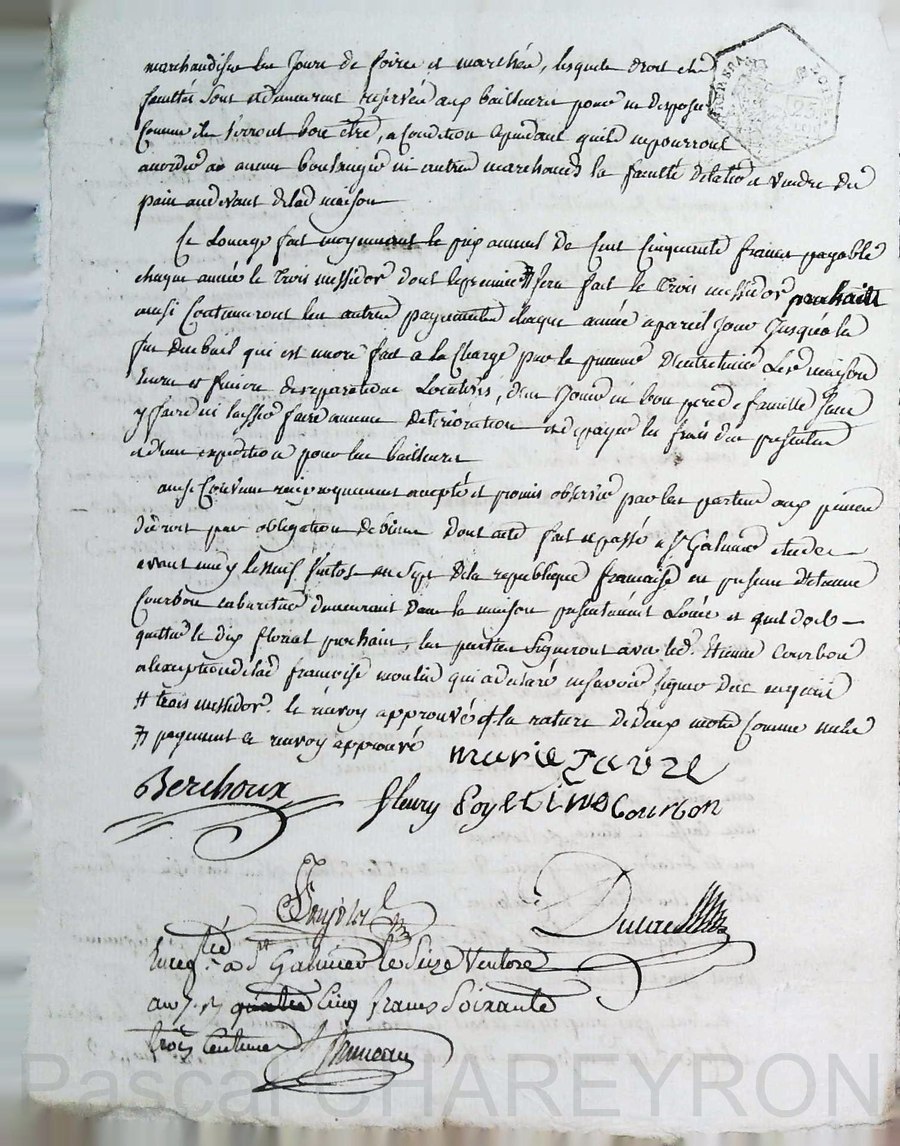 marchandises les Jours de foires et marchés, lesquels droit et
facultés Sont et demeurent reservés aux bailleurs pour en disposer
Comme ils verront bon être, a Condition Cependant quils ne pourront
accorder a aucun boulanger ni autres marchands la faculté de vendre du
pain au devant de lad maison
Ce Louage fait moyennant le prix annuel de Cent Cinquante francs payable
chaque année le trois messidor dont le premier # sera fait le trois messidor prochain
ainsi Continueront les autres payements chaque année a pareil Jour Jusques a la
fin du bail qui est encore fait a la Charge par le preneur d'entretenir
de reparations Locatives, d'en Jouir en bon pere de famille Sans
y faire ni laisser faire aucune deterioration et de payer les frais des presentes
et d'une expedition pour les bailleurs
ainsi Convenu reciproquement accepté et promis observer par les parties aux peines
de droit par obligation de biens Dont acte fait et passé a St Galmier etude
avant midy le neuf Ventos an Sept De la republique française en presence d'Etienne
Courbon cabaretier demeurant Dans la maison presentement Louée et quil doit
quitter le dix floreal prochain, les parties Signeront avec led. Etienne Courbon
a l'exception de lad françoise moulin qui a declaré ne savoir signer de ce enquise
# trois messidor. le renvoy approuvé et la rature de deux mots Comme nulle
# payement ce renvoy approuvé
marie favre
Berchoux fleury Poy etiene Courbon
Enregtré a St Galmier le Seize Ventose
an 7. R quatre Cinq francs Soixante
trois Centimes
Pascal CHAREYRON